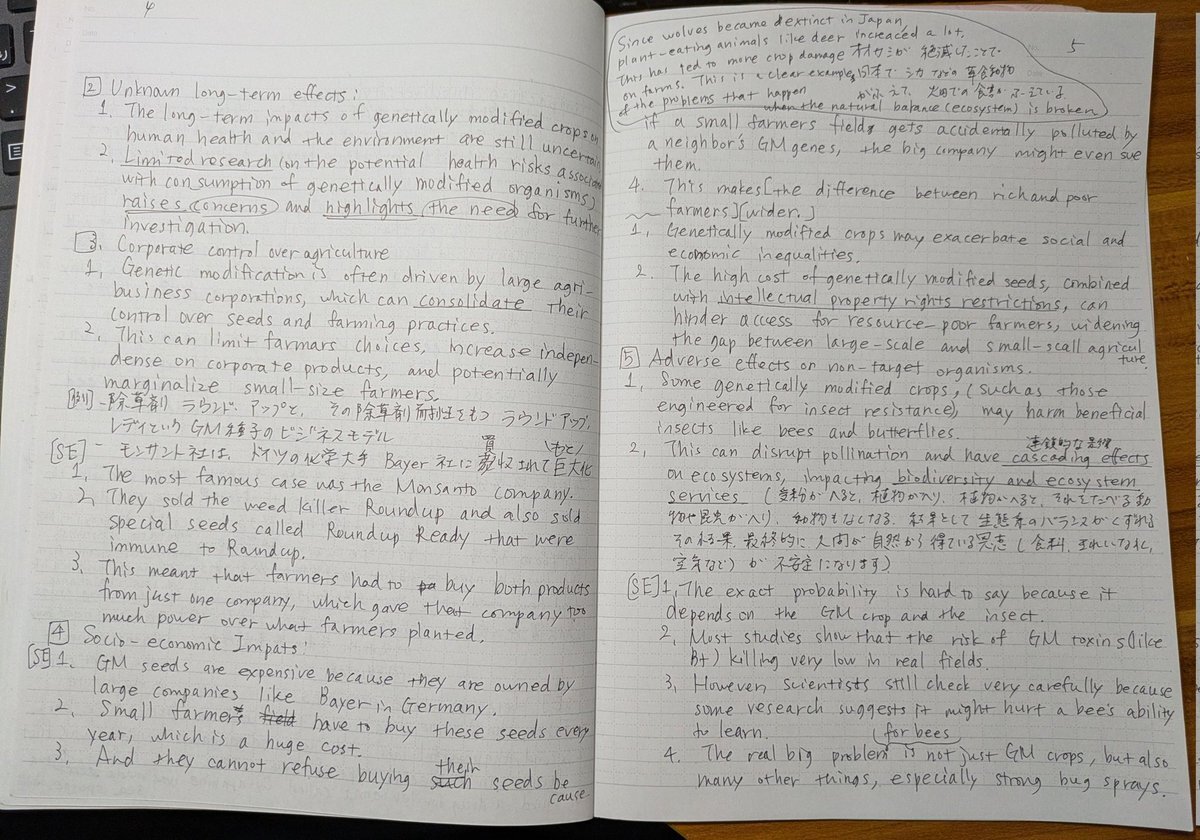 4
2 Unknown long-term effects:
1. The long-term impacts of genetically modified crops on
human health and the environment are still uncertain
2. Limited research (on the potential health risks associate
with consumption of genetically modified organisms)
raises (concerns) and highlights (the need) for further
investigation.
3. Corporate control over agriculture
1. Genetic modification is often driven by large agri-
business corporations, which can consolidate their
control over seeds and farming practices.
2. This can limit farmars choices, increase indepen-
dense on corporate products, and potentially
marginalize small-size farmers.
[例] - 除草剤 ラウンド・アップと、その除草剤耐性をもつ ラウンドアップ・
レディという GM種子のビジネスモデル
[SE] - モンサント社は、ドイツの化学大手 Bayer 社に買収されて巨大化
1. The most famous case was the Monsanto company.
2. They sold the weed killer Roundup and also sold
special seeds called Roundup Ready that were
immune to Roundup.
3. This meant that farmers had to buy both products
from just one company, which gave that company too
much power over what farmers planted.
4 Socio-economic Impats:
[SE] 1. GM seeds are expensive because they are owned by
large companies like Bayer in Germany.
2. Small farmers field have to buy these seeds every
year, which is a huge cost.
3. And they cannot refuse buying such their seeds be
cause
5
Since wolves became extinct in Japan,
plant-eating animals like deer increaced a lot.
This has led to more crop damage
on farms. This is a clear example
of the problems that happen
when the natural balance (ecosystem) is broken
オオカミが 絶滅したことで
日本で シカなどの 草食動物
がふえて、
if a small farmers fields gets accidentally polluted by
a neighbor's GM genes, the big company might even sue
them.
4. This makes [the difference between rich and poor
farmers] [wider.]
1. Genetically modified crops may exacerbate social and
economic inequalities.
2. The high cost of genetically modified seeds, combined
with intellectual property rights restrictions, can
hinder access for resource-poor farmers, widening
the gap between large-scale and small-scall agricul
ture.
5 Adverse effects on non-target organisms.
1. Some genetically modified crops, (such as those
engineered for insect resistance), may harm beneficial
insects like bees and butterflies.
連鎖的な影響
2. This can disrupt pollination and have cascading effects
on ecosystems, impacting biodiversity and ecosystem
services (受粉がへると、植物がへり、植物がへると、それをたべる動
物や昆虫がへり、動物もなくなる。結果として 生態系のバランスがくずれる
その結果、最終的に 人間が 自然から得ている恩恵 (食料、きれいな水、
空気など) が 不安定になります)
[SE] 1. The exact probability is hard to say because it
depends on the GM crop and the insect.
2. Most studies show that the risk of GM toxins (like
Bt) killing very low in real fields.
3. However scientists still check very carefully because
some research suggests it might hurt a bee's ability
to learn.
(for bees)
4. The real big problem is not just GM crops, but also
many other things, especially strong bug sprays.